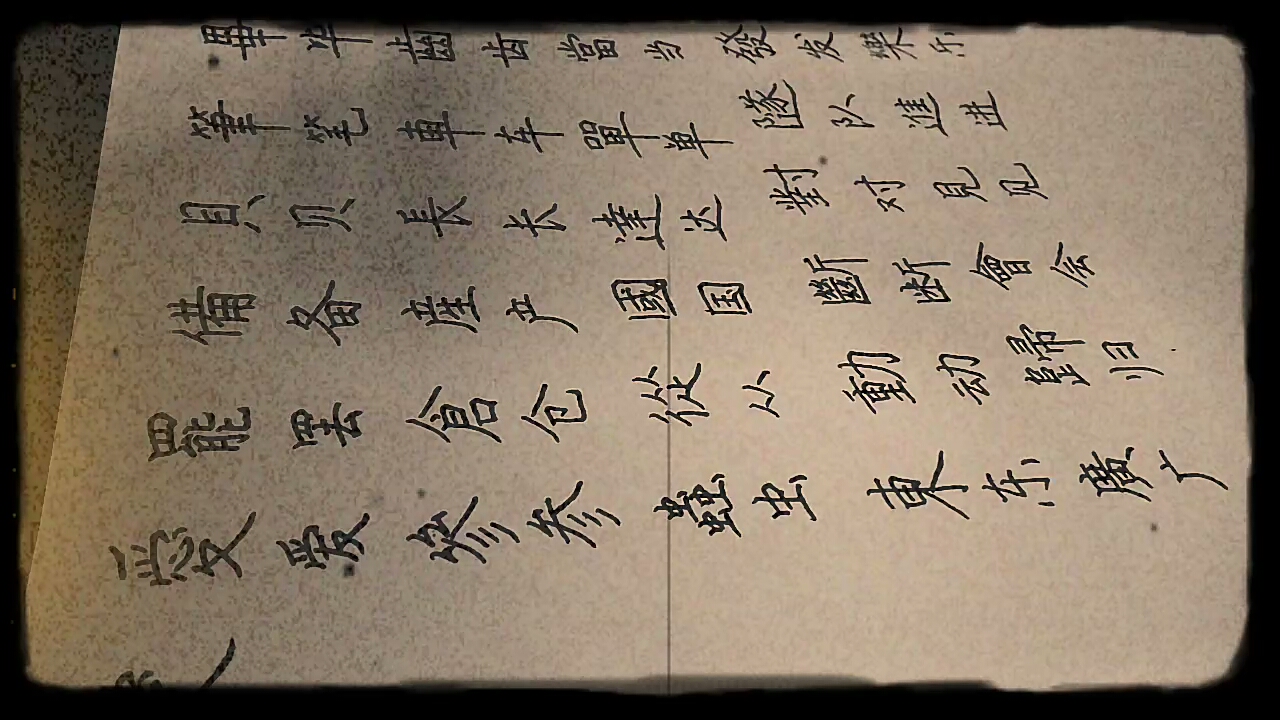 畢 毕 齒 齿 當 当 發 发 樂 乐
筆 笔 車 车 單 单 隊 队 進 进
貝 贝 長 长 達 达 對 对 見 见
備 备 産 产 國 国 斷 断 會 会
罷 罢 倉 仓 從 从 動 动 歸 归
愛 爱 參 参 蟲 虫 東 东 廣 广